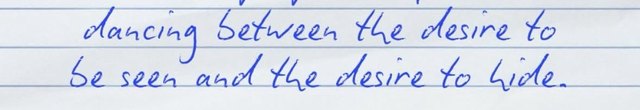 dancing between the desire to
be seen and the desire to hide.